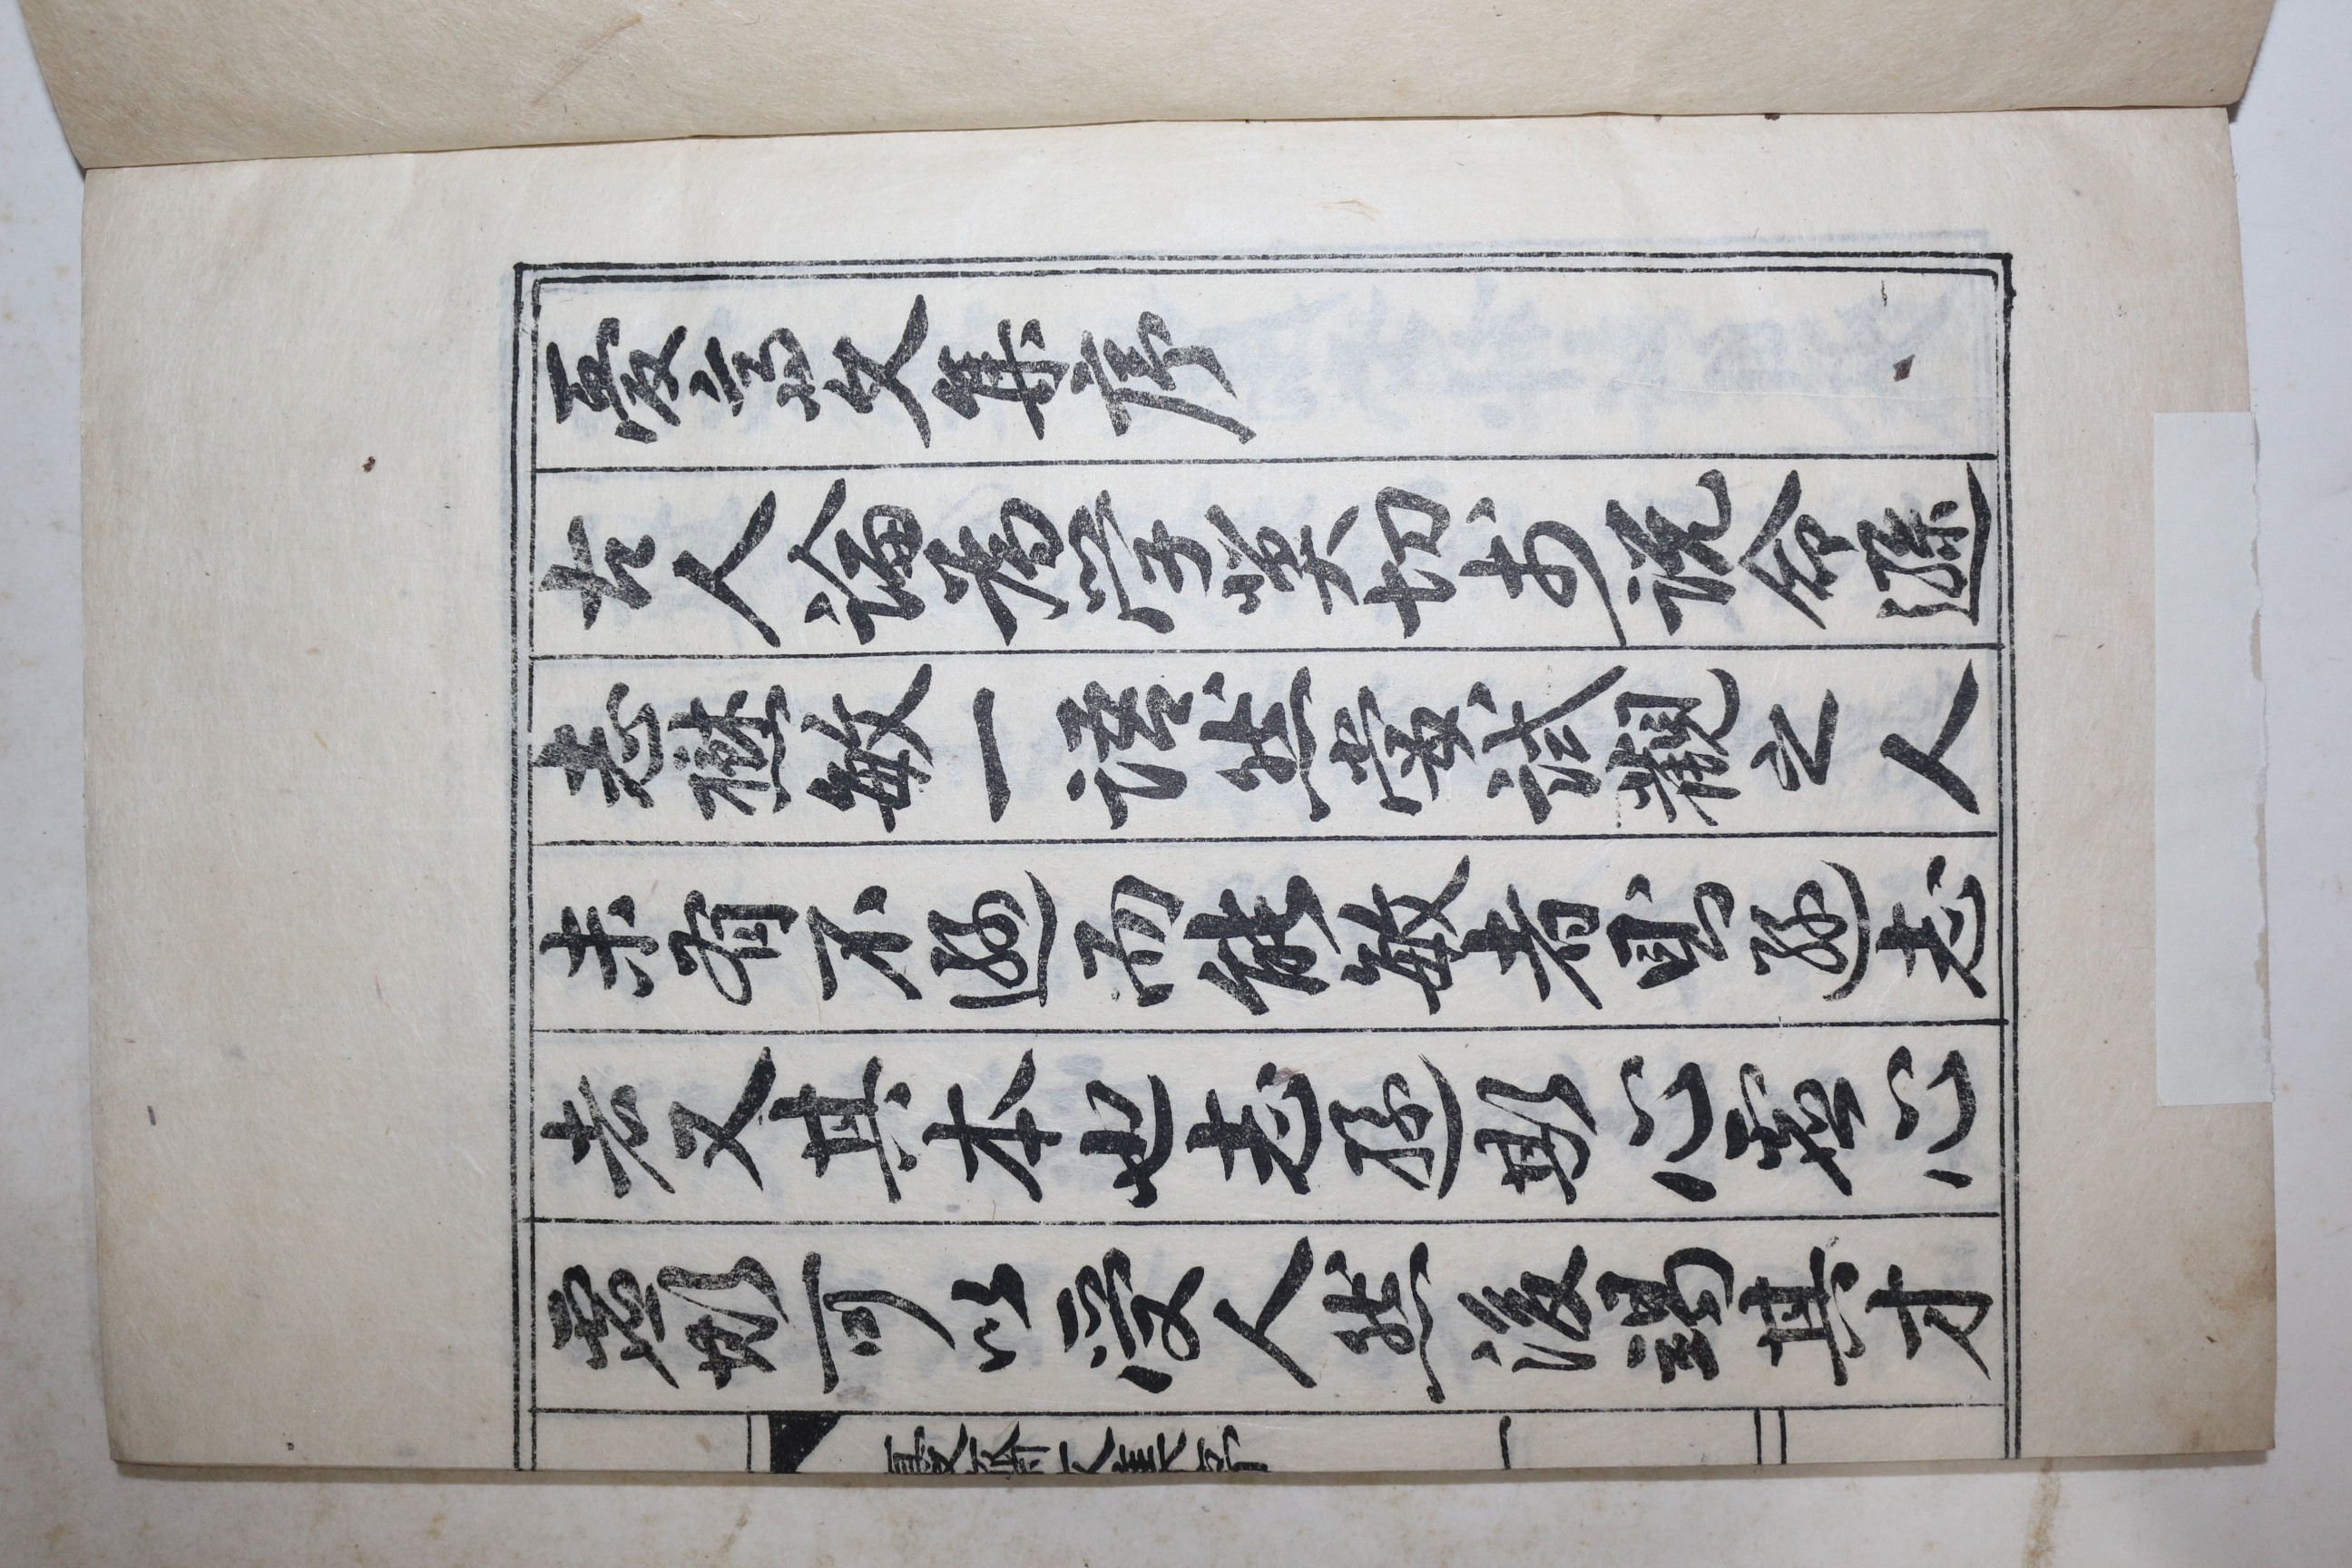 憂齋文集序
古人論為学莫切於說命遜
志懋敏一語然嘗試觀之人
未有不遜而能敏者則遜志
者又其本也志遜斯心虛心
虛斯可以受人然後竭其才